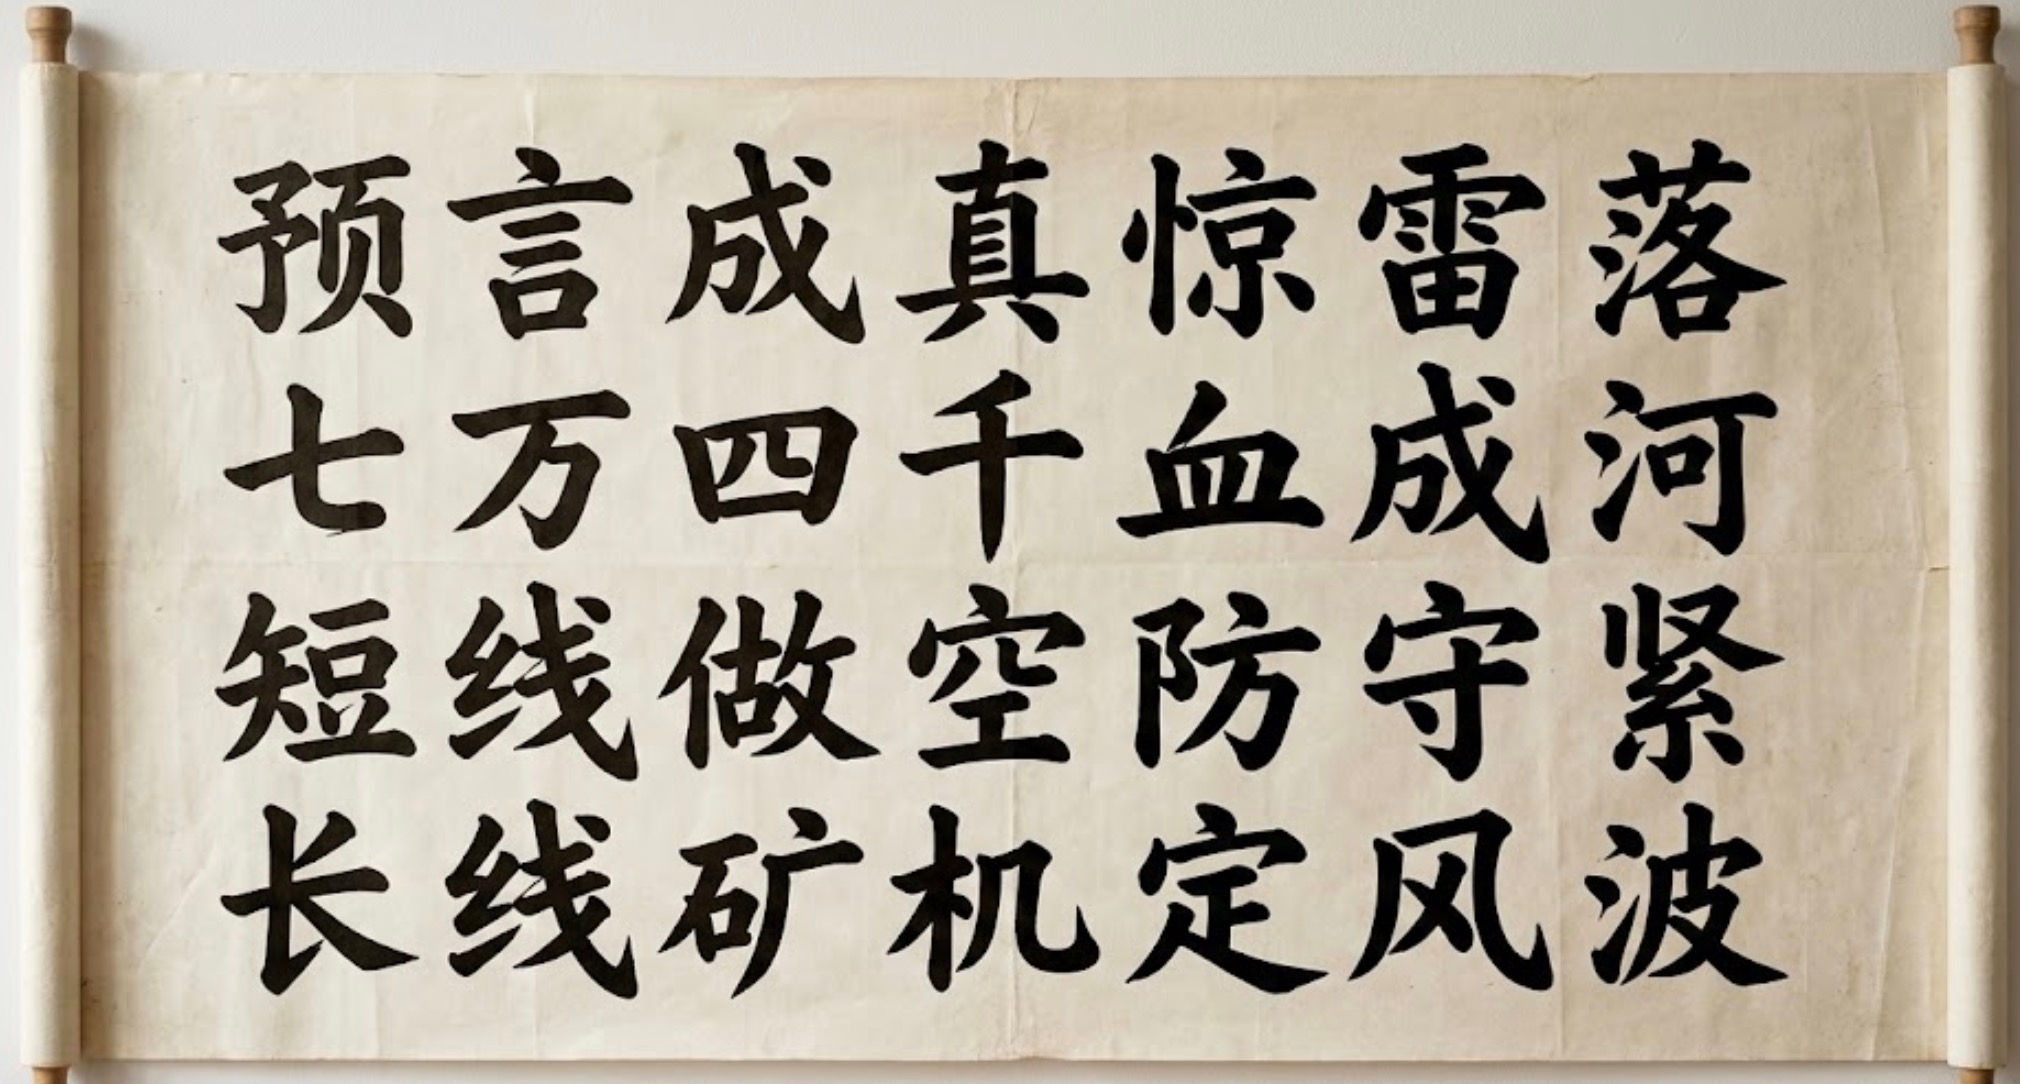 预言成真惊雷落
七万四千血成河
短线做空防守紧
长线矿机定风波